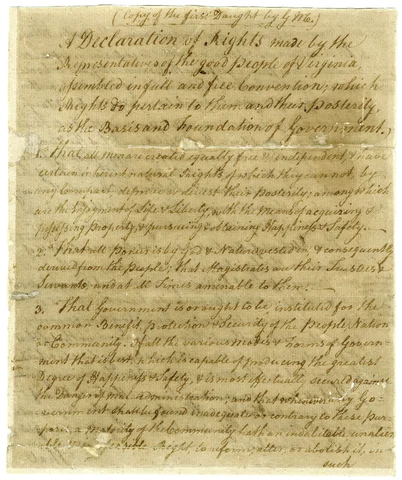 (Copy of the first Daught by G M.)
A Declaration of Rights made by the
Representatives of the good People of Virginia,
assembled in full and free Convention; which
Rights do pertain to them and their Posterity,
as the Basis and Foundation of Government.
1. That all men are created equally free & independent, & have
certain inherent natural Rights, of which they cannot, by
any Compact, deprive or divest their Posterity; among which
are the Enjoyment of Life & Liberty, with the Means of acquiring &
possessing Property, & pursueing & obtaining Happiness & Safety.
2. That all Power is by God & Nature vested in, & consequently
derived from the People; that Magistrates are their Trustees &
Servants, and at all Times amenable to them.
3. That Government is or ought to be, instituted for the
common Benefit, protection & Security of the People, Nation
or Community. Of all the various modes & Forms of Govern-
ment that is best, which is capable of producing the greatest
Degree of Happiness & Safety, & is most effectually secured against
the Danger of mal-administration; and that whenever any Go-
vernment shall be found inadequate or contrary to these Pur-
poses, a Majority of the Community hath an indubitable unalien
able Right to reform, alter, or abolish it, in
such